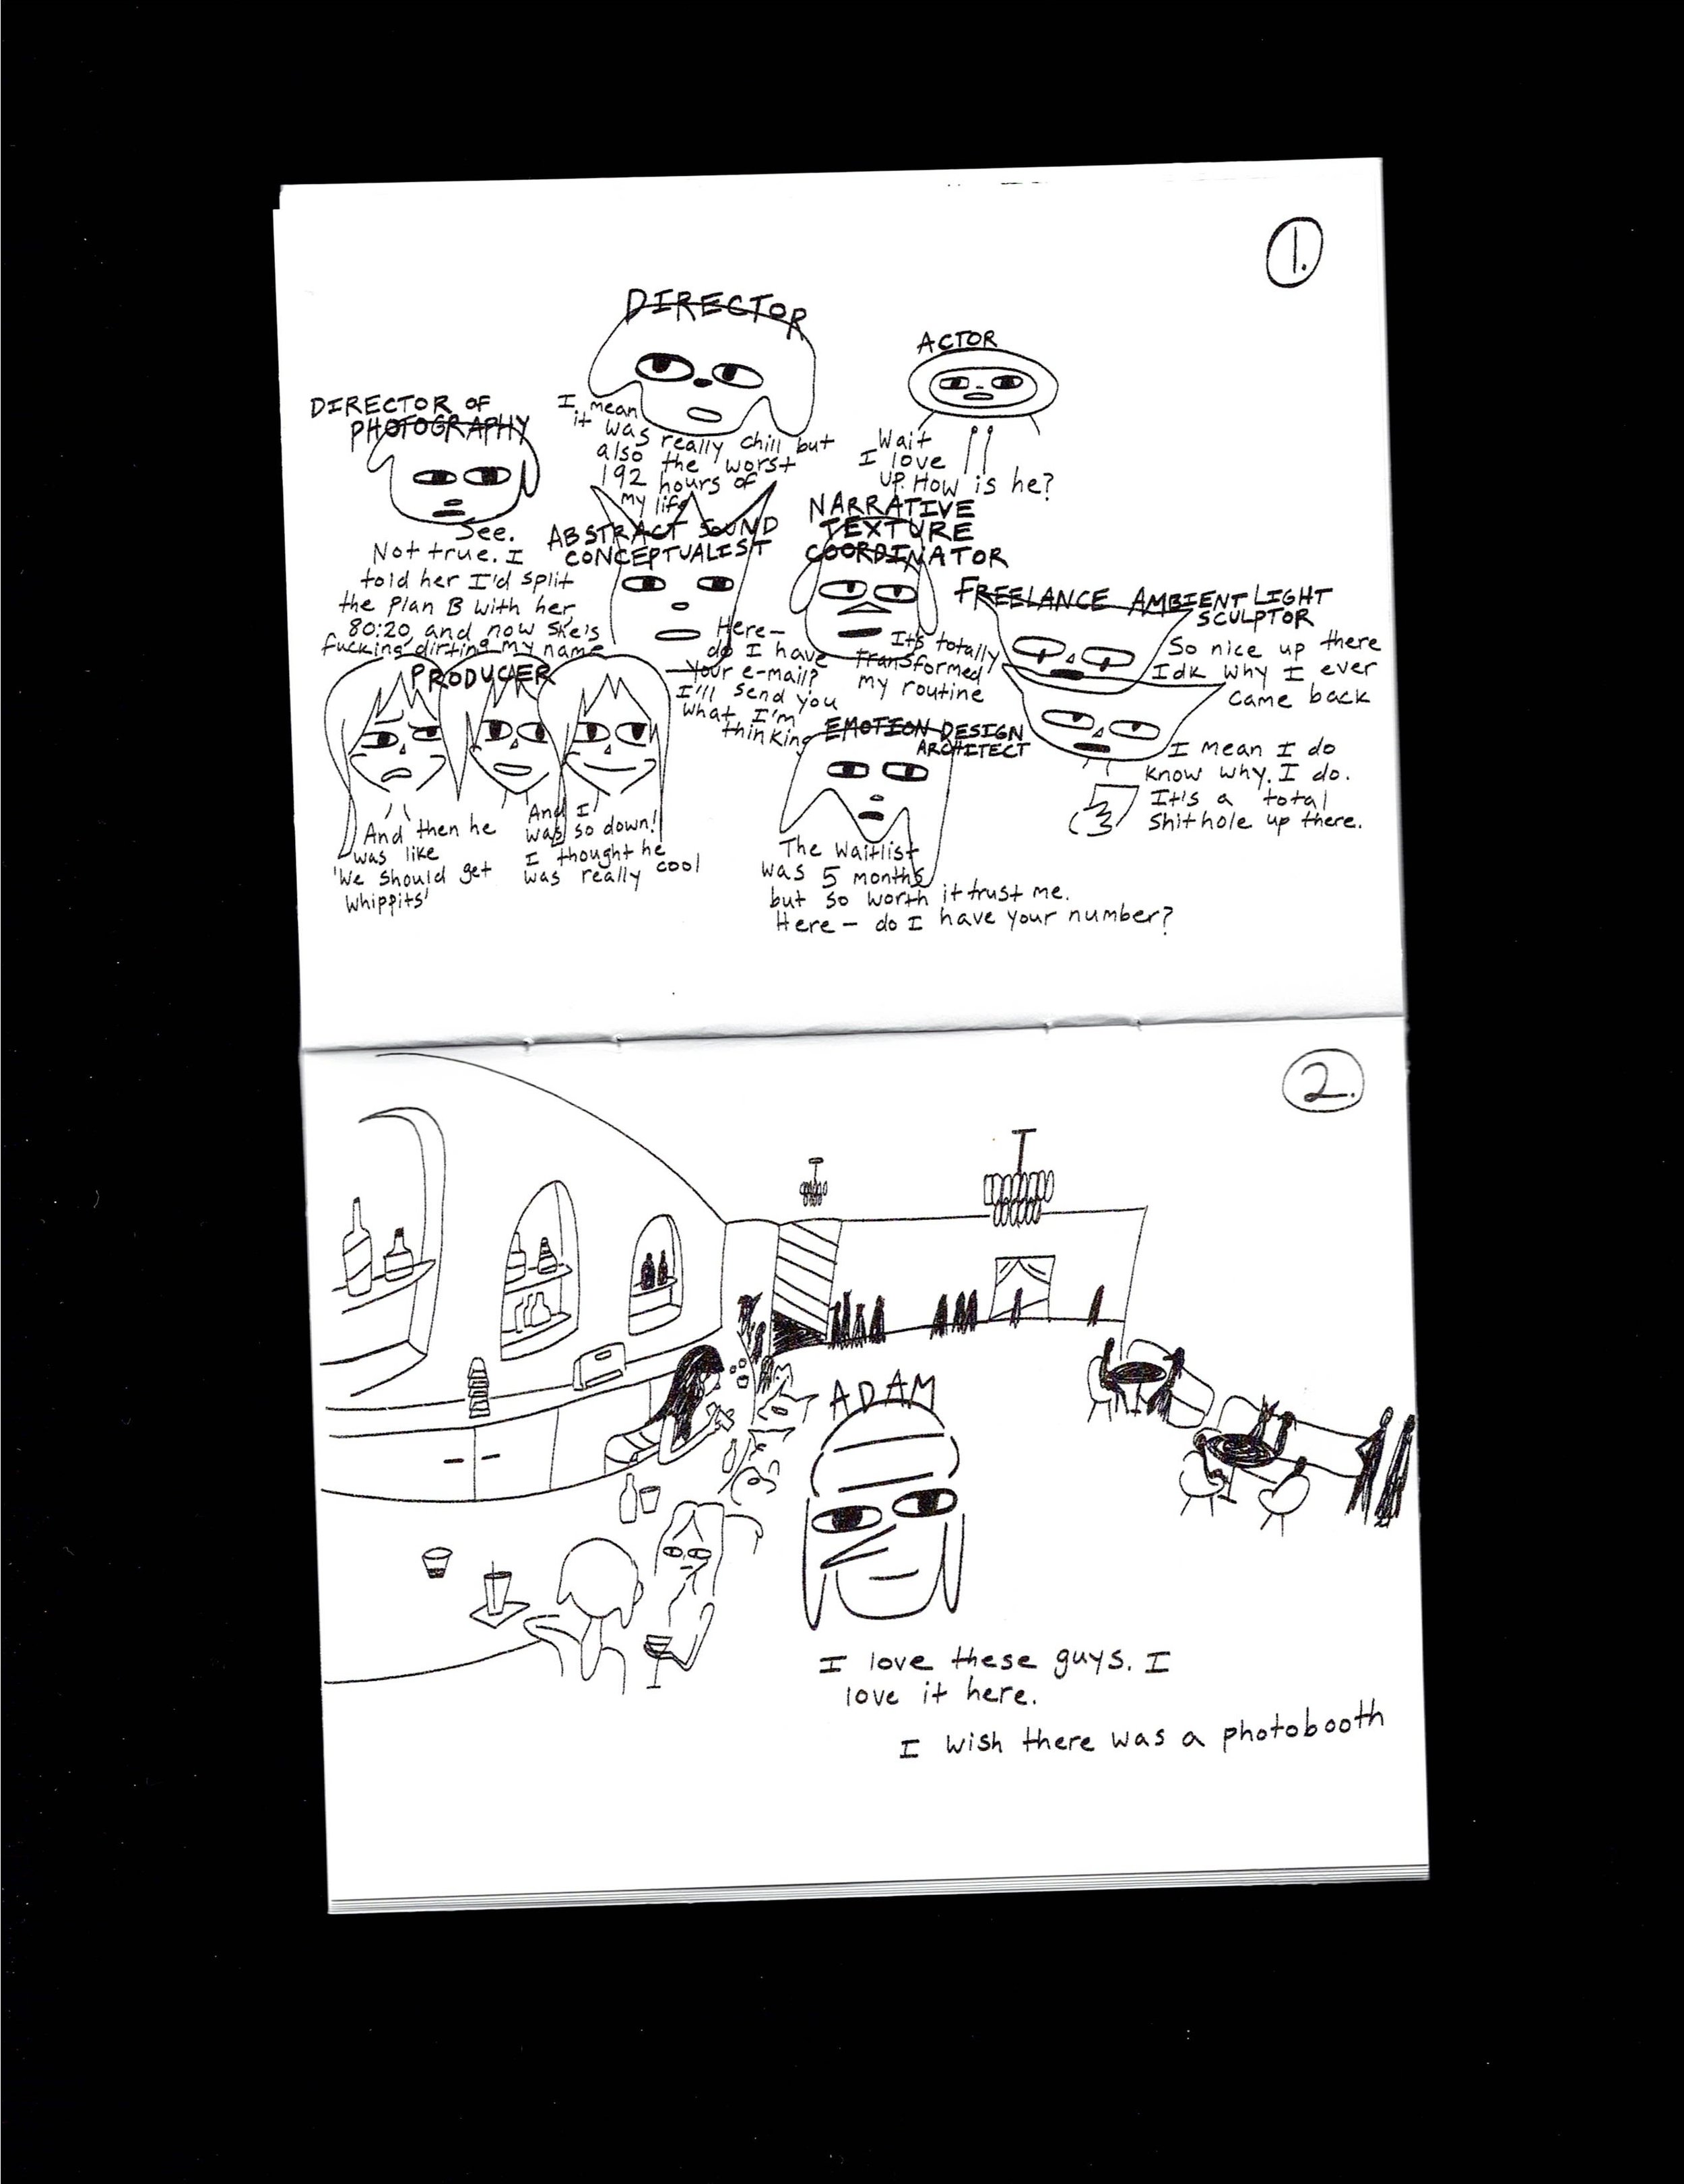 1.
DIRECTOR
I mean
it was
really chill but
also the worst
192 hours of
my life
ACTOR
Wait
I love
up. How is he?
DIRECTOR OF
PHOTOGRAPHY
See.
Not true. I
told her I'd split
the Plan B with her
80:20 and now she's
fucking dirting my name
ABSTRACT SOUND
CONCEPTUALIST
Here—
do I have
your e-mail?
I'll send you
what I'm
thinking
NARRATIVE
TEXTURE
COORDINATOR
It's totally
transformed
my routine
FREELANCE AMBIENT LIGHT
SCULPTOR
So nice up there
Idk why I ever
came back
I mean I do
know why. I do.
It's a total
shithole up there.
PRODUCER
And then he
was like
'We should get
whippits'
And I
was so down!
I thought he
was really cool
EMOTION DESIGN
ARCHITECT
The waitlist
was 5 months
but so worth it trust me.
Here— do I have your number?
2.
ADAM
I love these guys. I
love it here.
I wish there was a photobooth